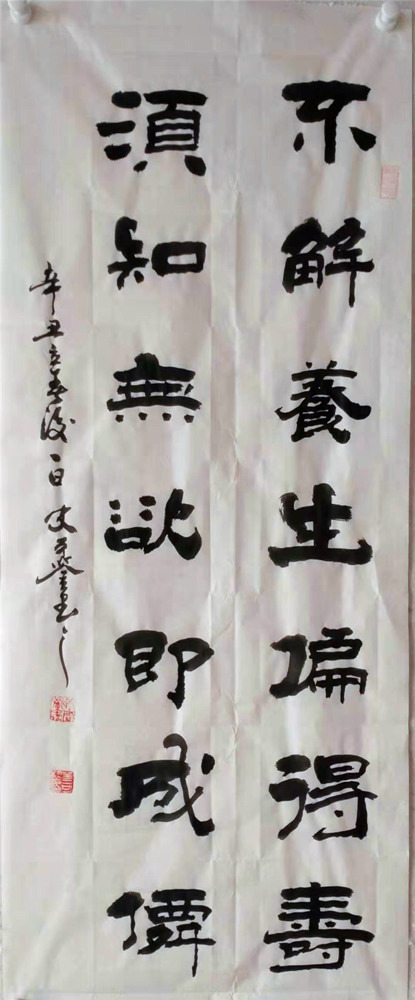 不解養生偏得壽
須知無欲即成僊
辛丑立春後一日